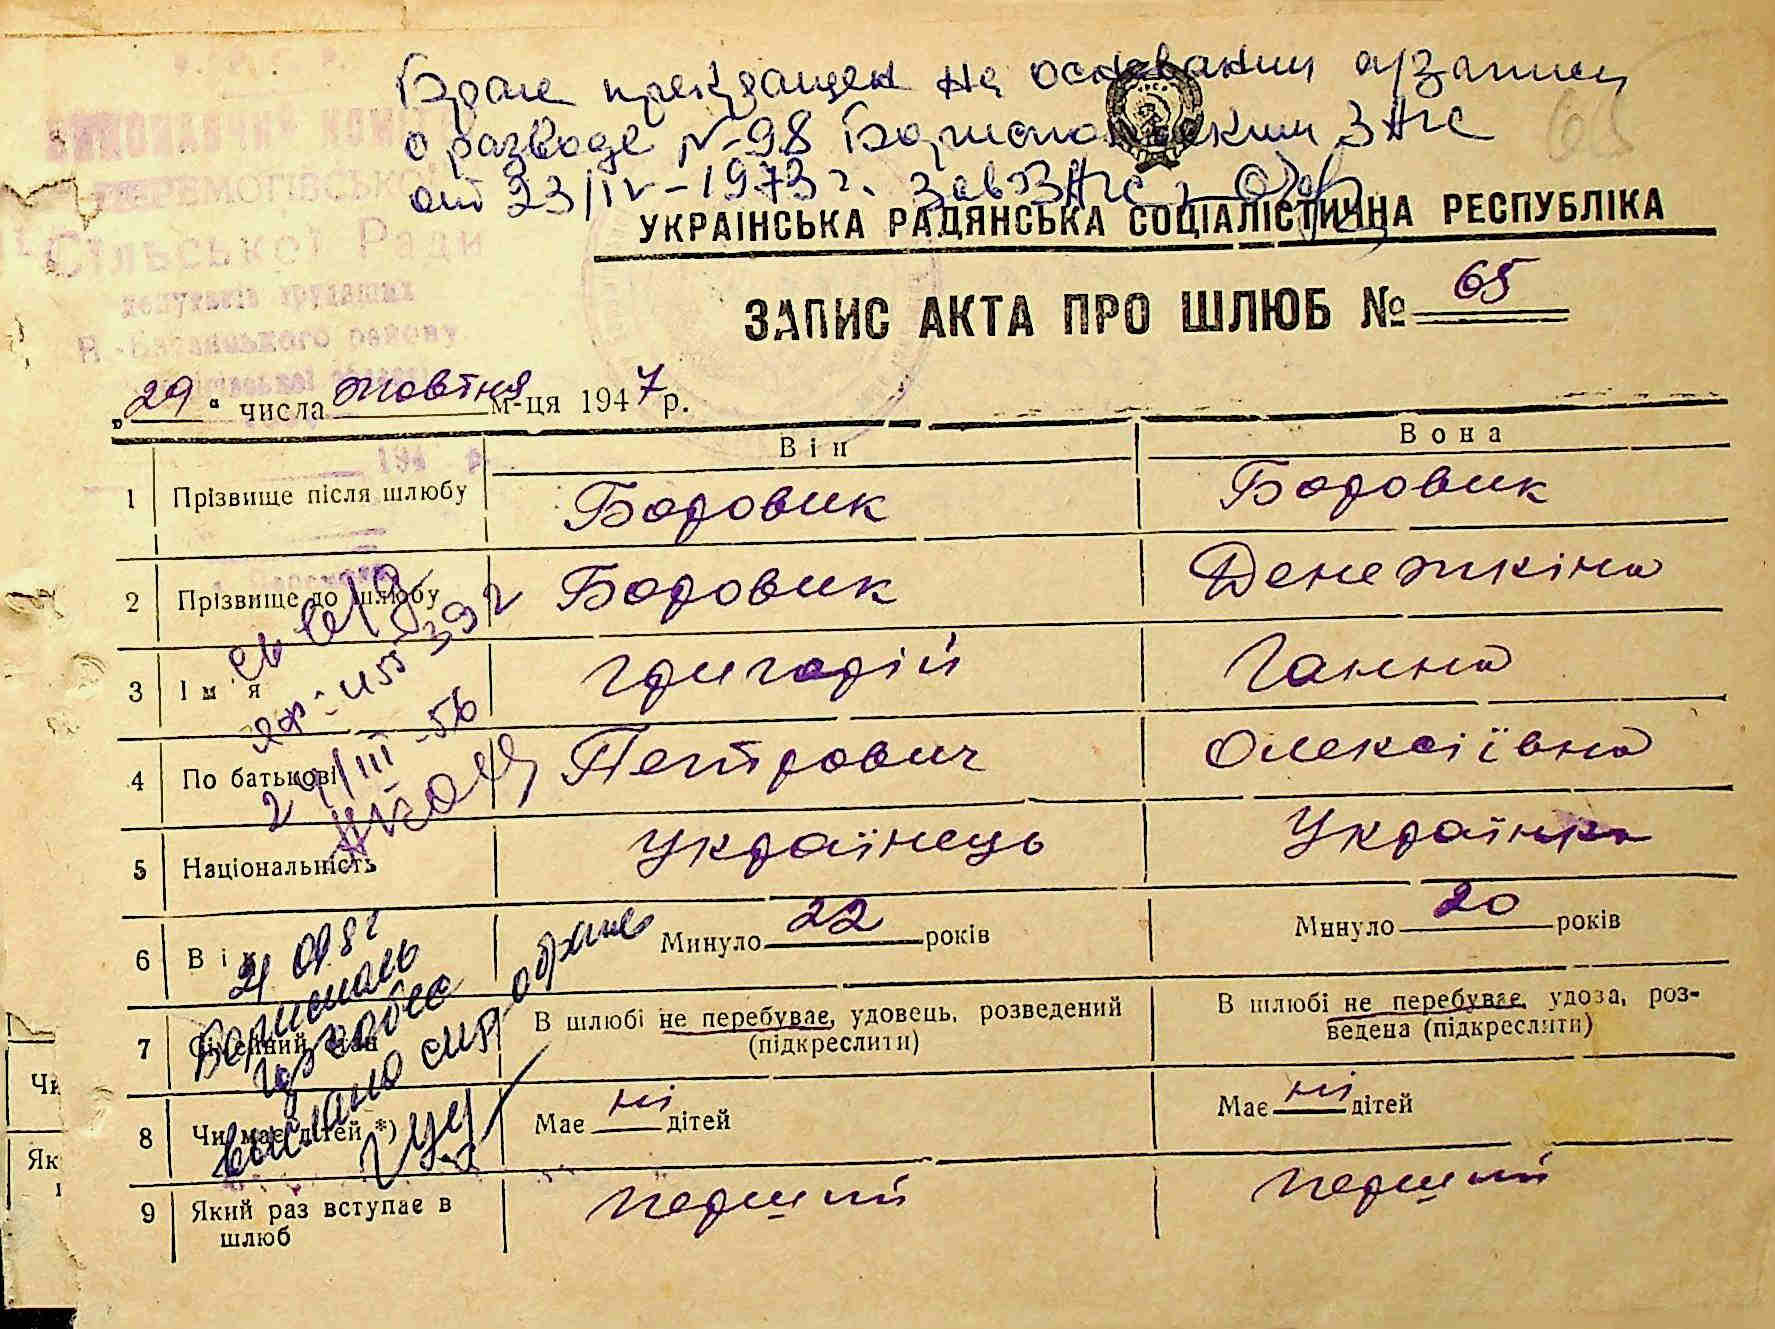 Брак прекращен на основании а/записи
о разводе №98 Бориспольским ЗАГС
от 23/IV-1973 г. Зав ЗАГС
65
ВИКОНАВЧИЙ КОМІТЕТ
ПЕРЕМОГІВСЬКОЇ
Сільської Ради
депутатів трудящих
Н-Басанського району
194 р.
УКРАЇНСЬКА РАДЯНСЬКА СОЦІАЛІСТИЧНА РЕСПУБЛІКА
ЗАПИС АКТА ПРО ШЛЮБ № 65
„29“ числа жовтня м-ця 1947 р.
Він Вона
1 Прізвище після шлюбу Боровик Боровик
2 Прізвище до шлюбу Боровик Денежкіна
3 Ім'я Григорій Ганна
4 По батькові Петрович Олексіївна
5 Національність Українець Українка
6 Вік Минуло 22 років Минуло 20 років
7 Сімейний стан В шлюбі не перебуває, удовець, розведений (підкреслити) В шлюбі не перебуває, удова, роз-
ведена (підкреслити)
8 Чи має дітей *) Має ні дітей Має ні дітей
9 Який раз вступає в шлюб перший перший
29/III-56
Бориспіль
о браке
Чи
Як